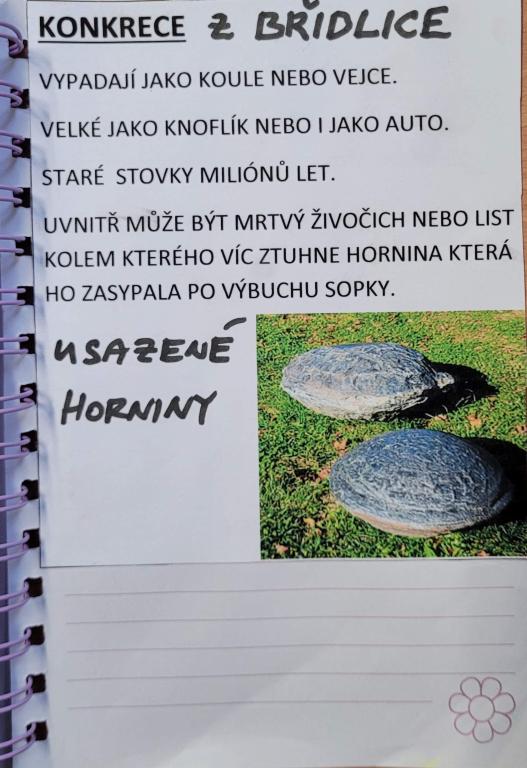 KONKRECE z BŘIDLICE
VYPADAJÍ JAKO KOULE NEBO VEJCE.
VELKÉ JAKO KNOFLÍK NEBO I JAKO AUTO.
STARÉ STOVKY MILIÓNŮ LET.
UVNITŘ MŮŽE BÝT MRTVÝ ŽIVOČICH NEBO LIST
KOLEM KTERÉHO VÍC ZTUHNE HORNINA KTERÁ
HO ZASYPALA PO VÝBUCHU SOPKY.
USAZENÉ
HORNINY